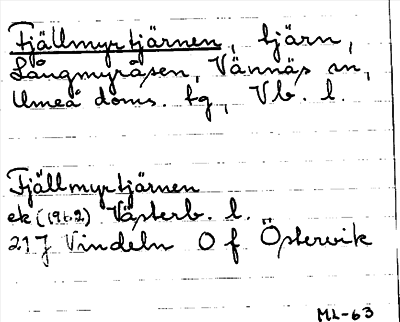 Fjällmyrtjärnen, tjärn,
Långmyråsen, Vännäs sn,
Umeå doms. tg, Vb. l.
Fjällmyrtjärnen
ek (1962) Västerb. l.
21J Vindeln O f Östervik
ML-63